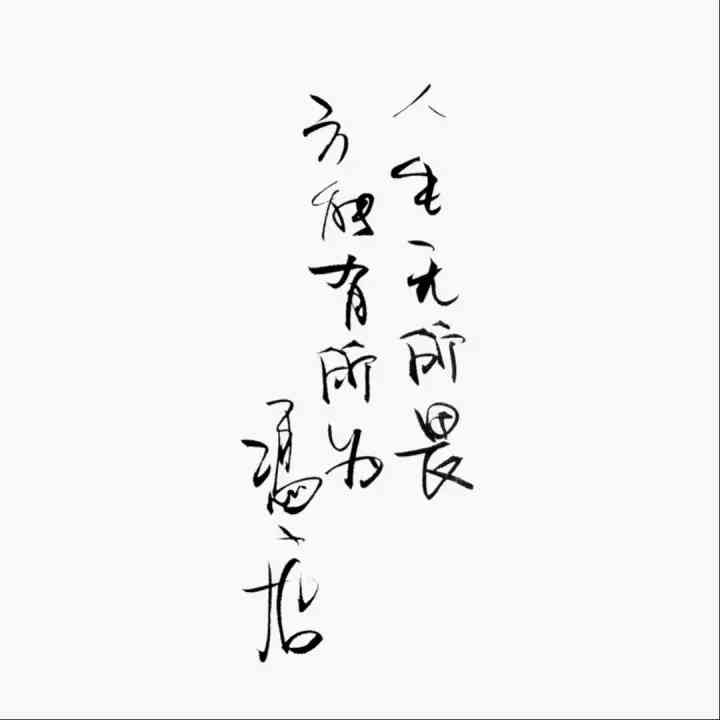 人生无所畏
方能有所为